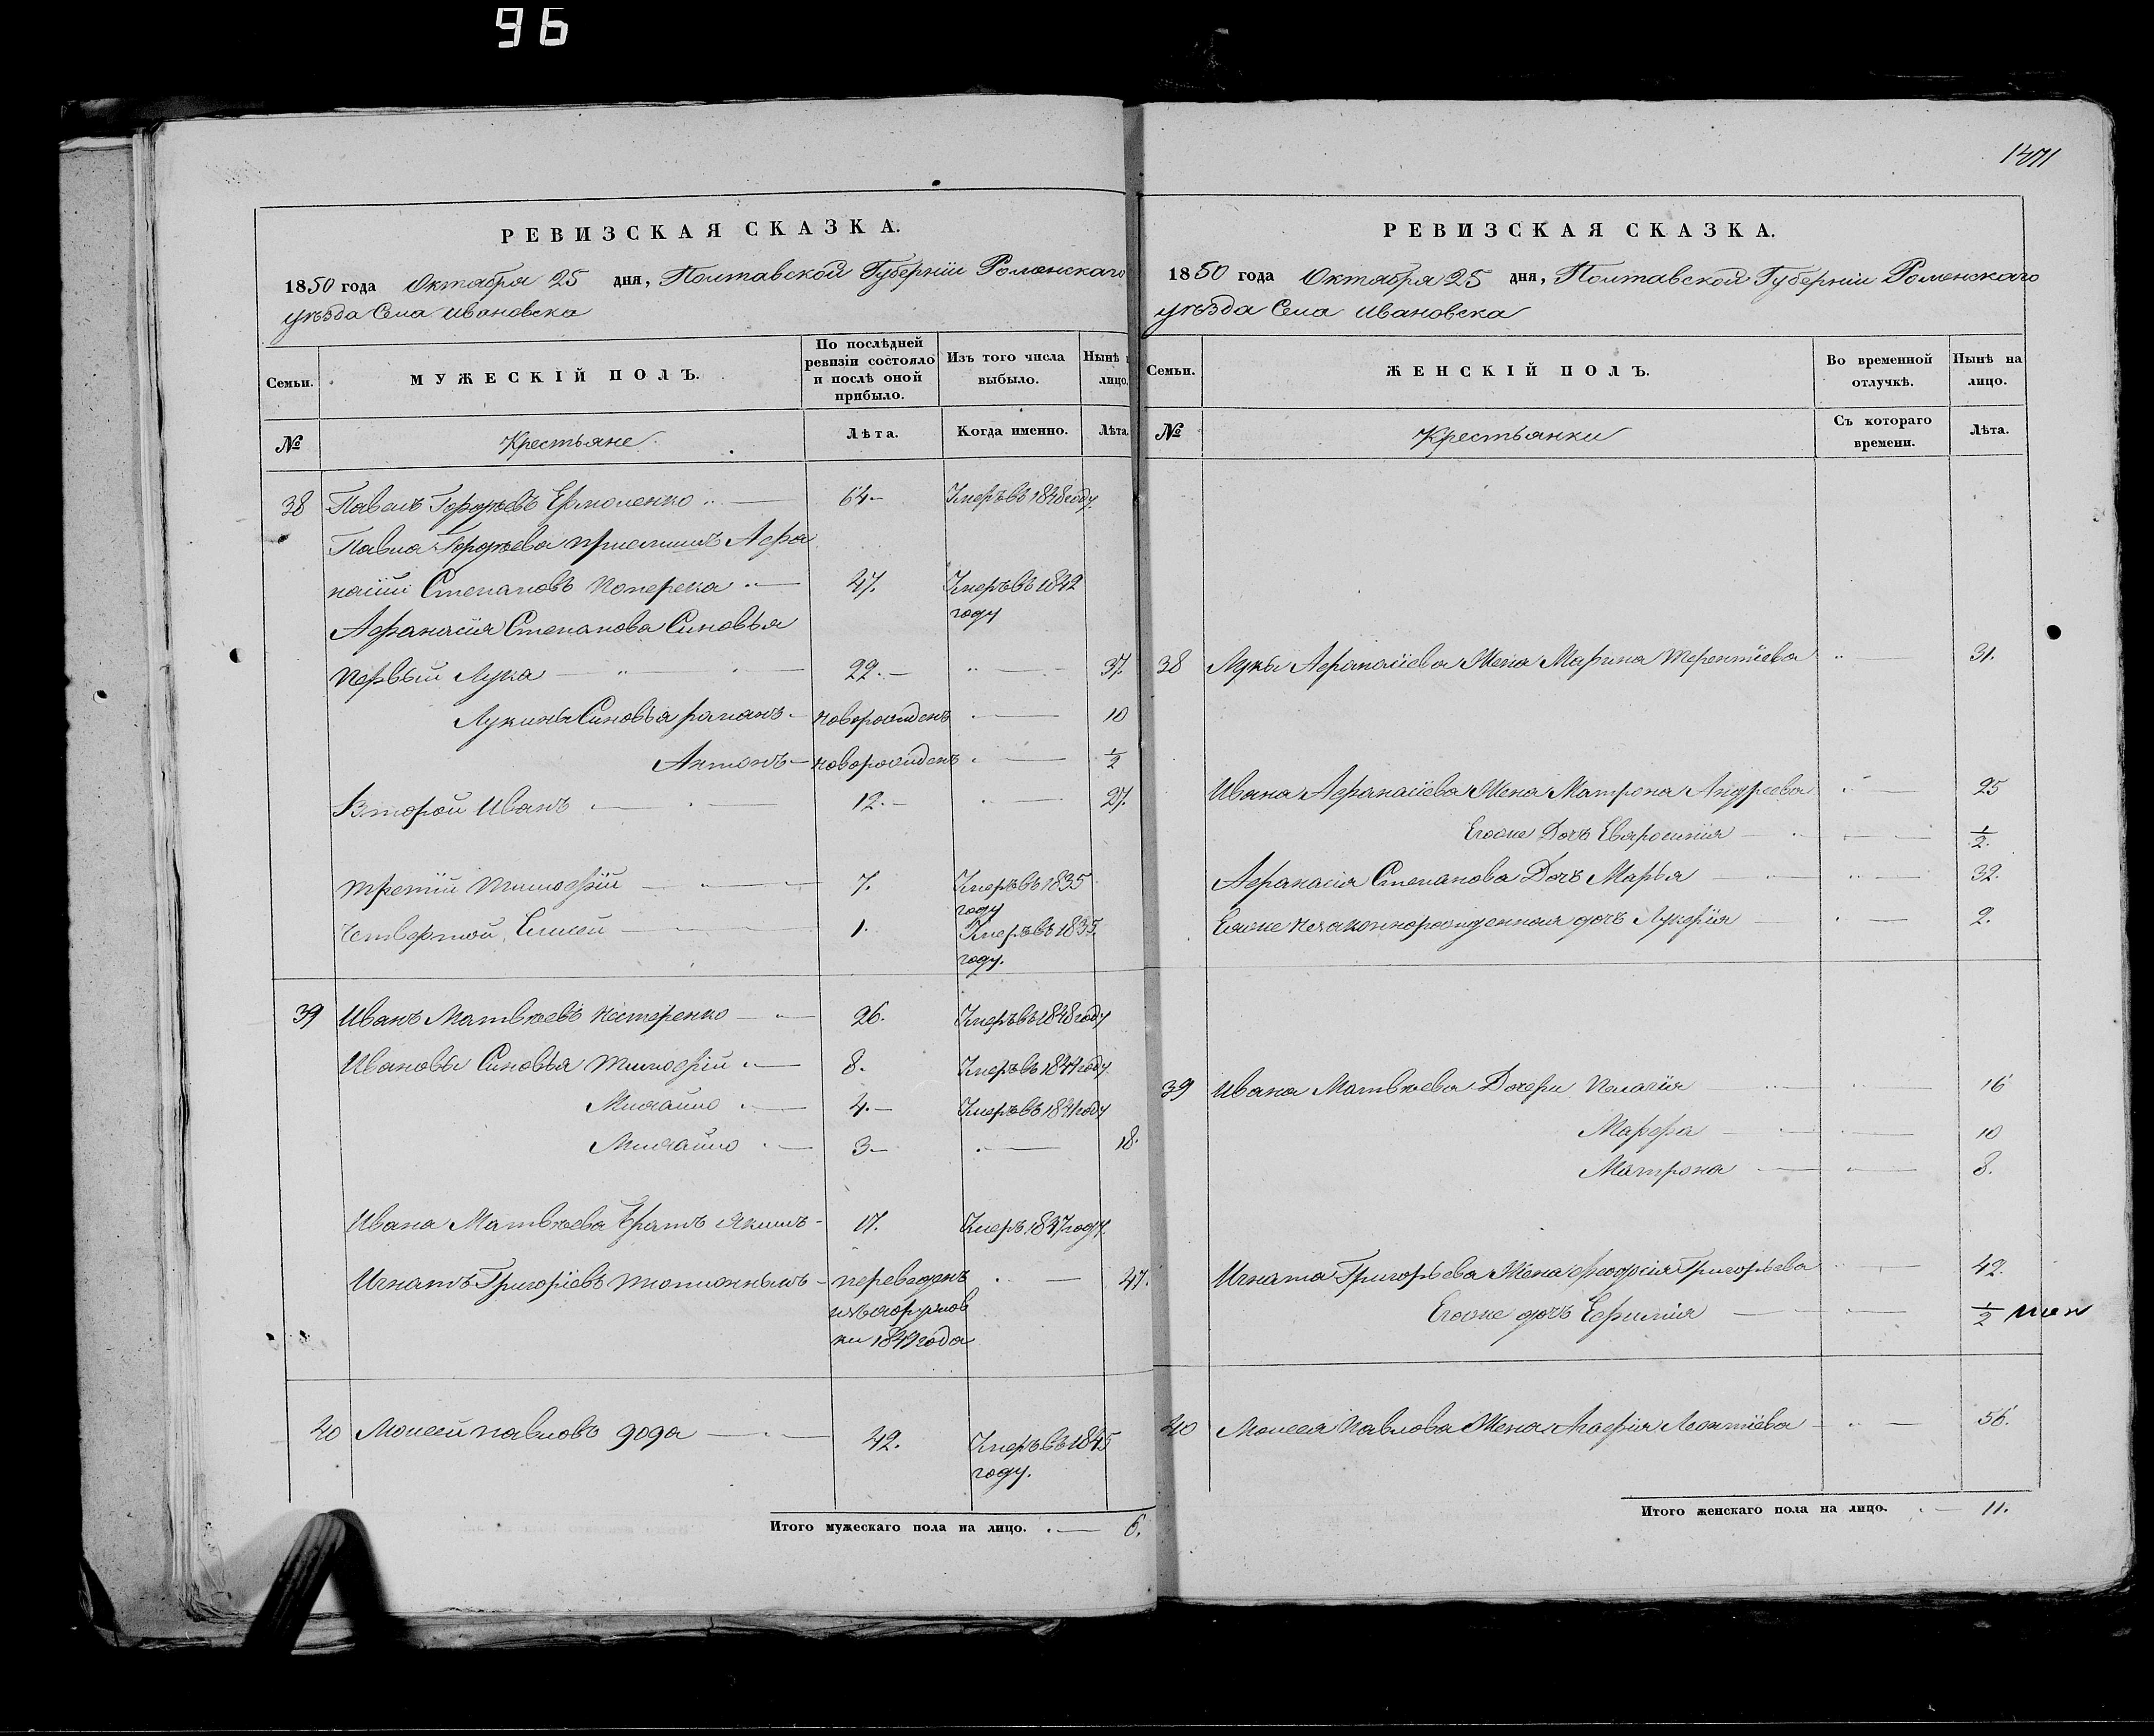 96
1471
РЕВИЗСКАЯ СКАЗКА.
1850 года Октября 25 дня, Полтавской Губерніи Роменскаго
уѣзда Села Ивановска
Семьи. МУЖЕСКІЙ ПОЛЪ. По послѣдней ревизіи состояло и послѣ оной прибыло. Изъ того числа выбыло. Нынѣ лицо.
№ Крестьяне Лѣта. Когда именно. Лѣта.
38 Павелъ Ермоленко 64 Умеръ въ 1848 году.
Павла приемышъ Афа
насій Степановъ Поперека 47. Умеръ въ 1842
году
Афанасія Степанова Сыновья
Первый Лука 22. 37.
Лукины Сыновья новорожденъ 10
Антонъ новорожденъ 1/2
Второй Иванъ 12. 27.
третій Тимофѣй 7. Умеръ въ 1835
году
Четвертой 1. Умеръ въ 1835
году.
39 Иванъ Матвѣевъ Нестеренко 26. Умеръ въ 1848 году
Ивановы Сыновья Тимофій 8. Умеръ въ году
Михайло 4. Умеръ въ году
Михайло 3 18.
Ивана Матвѣева братъ Якимъ 17. Умеръ 1837 году.
Игнатъ Григоріевъ переведенъ 47.
ки года
40 Моисей Павловъ 42. Умеръ въ 1845
году.
Итого мужескаго пола на лицо. 6.
РЕВИЗСКАЯ СКАЗКА.
1850 года Октября 25 дня, Полтавской Губерніи Роменскаго
уѣзда Села Ивановска
Семьи. ЖЕНСКІЙ ПОЛЪ. Во временной отлучкѣ. Нынѣ на лицо.
№ Крестьянки Съ котораго времени. Лѣта.
38 Луки Афанасіева Жена Марина Терентіева 31.
Ивана Афанасіева Жена Матрона Андреева 25
Егоже Дочъ Евфросинія 1/2.
Афанасія Степанова Дочъ Марья 32.
Еяже незаконнорожденная дочъ Лукерія 2.
39 Ивана Матвѣева Дочери Пелагія 16
Марфа 10
Матрона 8.
Игната Григорьева Жена Феодосія Григорьева 42.
Егоже дочъ Ефимія 1/2
40 Моисея Павлова Жена Агафія Леонтіева 56.
Итого женскаго пола на лицо. 11.